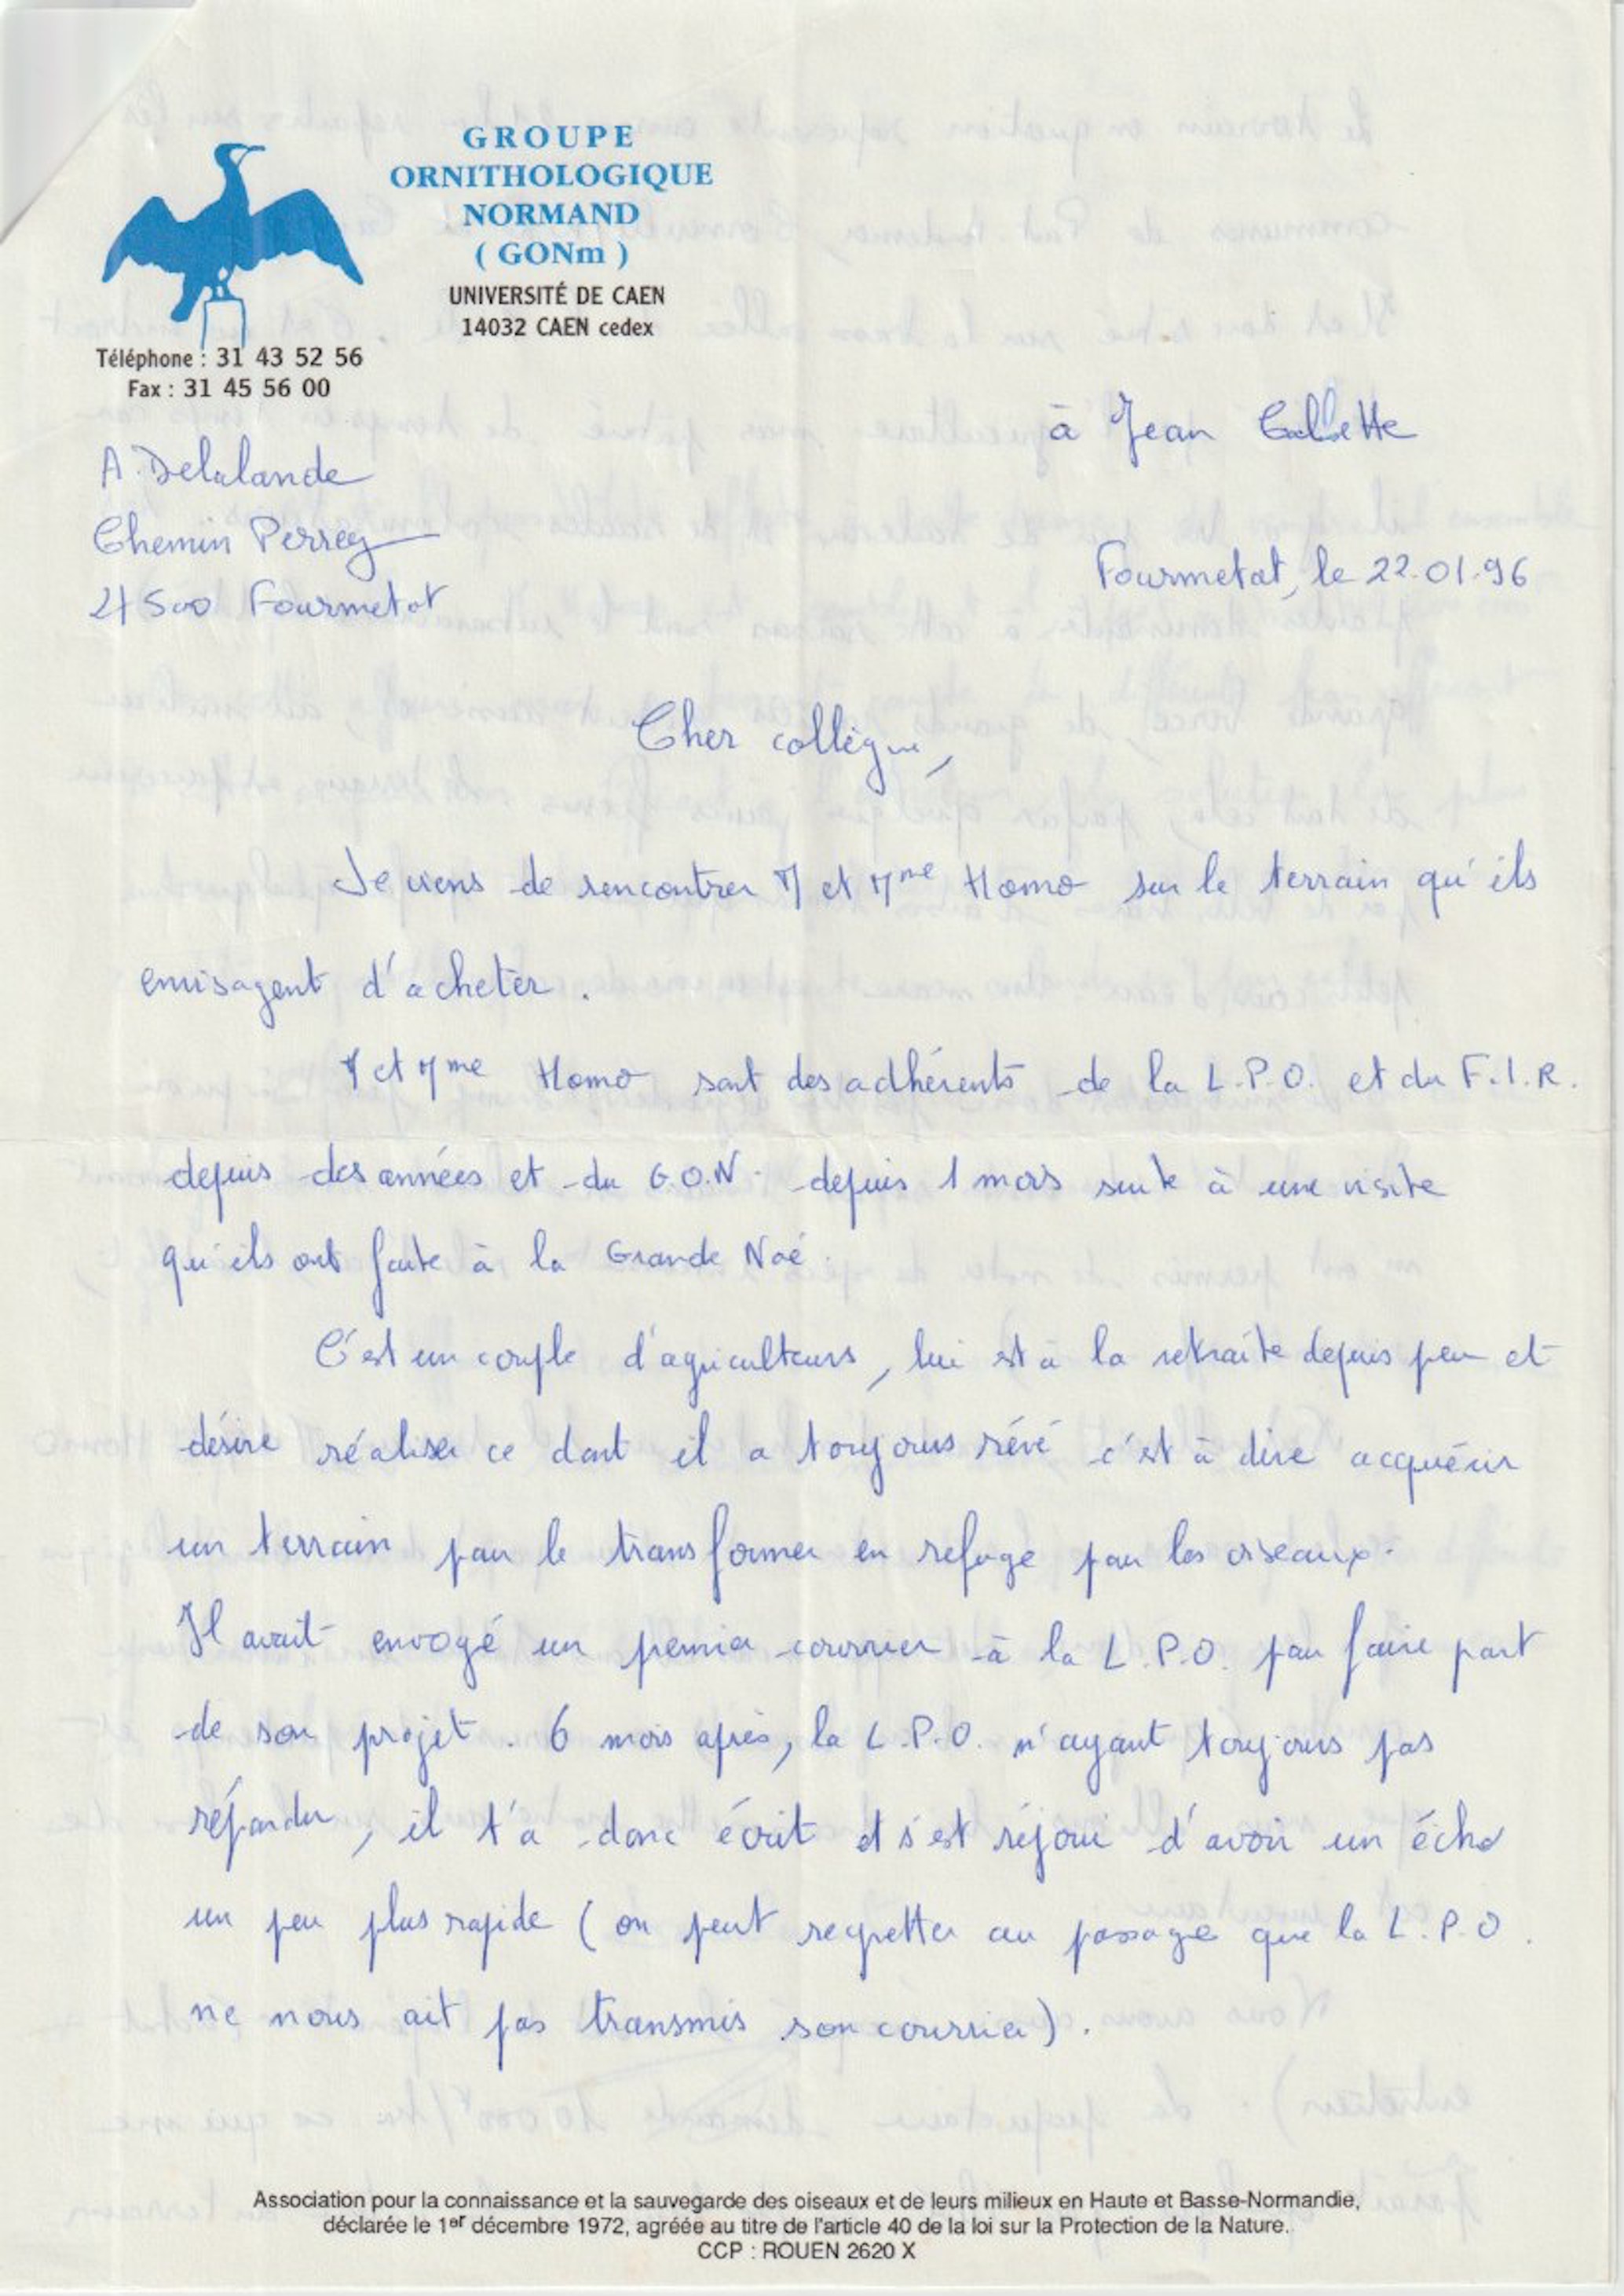 GROUPE
ORNITHOLOGIQUE
NORMAND
( GONm )
UNIVERSITÉ DE CAEN
14032 CAEN cedex
Téléphone : 31 43 52 56
Fax : 31 45 56 00
à Jean Collette
A. Delalande
Chemin Perrey
27500 Fourmetot
Fourmetot, le 22.01.96
Cher collègue,
Je viens de rencontrer M et Mme Homo sur le terrain qu'ils
envisagent d'acheter.
M et Mme Homo sont des adhérents de la L.P.O. et du F.I.R.
depuis des années et du G.O.N. depuis 1 mois suite à une visite
qu'ils ont faite à la Grande Noé.
C'est un couple d'agriculteurs, lui est à la retraite depuis peu et
désire réaliser ce dont il a toujours rêvé c'est à dire acquérir
un terrain pour le transformer en refuge pour les oiseaux.
Il avait envoyé un premier courrier à la L.P.O. pour faire part
de son projet. 6 mois après, la L.P.O. n'ayant toujours pas
répondu, il t'a donc écrit et s'est réjoui d'avoir un écho
un peu plus rapide (on peut regretter au passage que la L.P.O.
ne nous ait pas transmis son courrier).
Association pour la connaissance et la sauvegarde des oiseaux et de leurs milieux en Haute et Basse-Normandie,
déclarée le 1er décembre 1972, agréée au titre de l'article 40 de la loi sur la Protection de la Nature.
CCP : ROUEN 2620 X